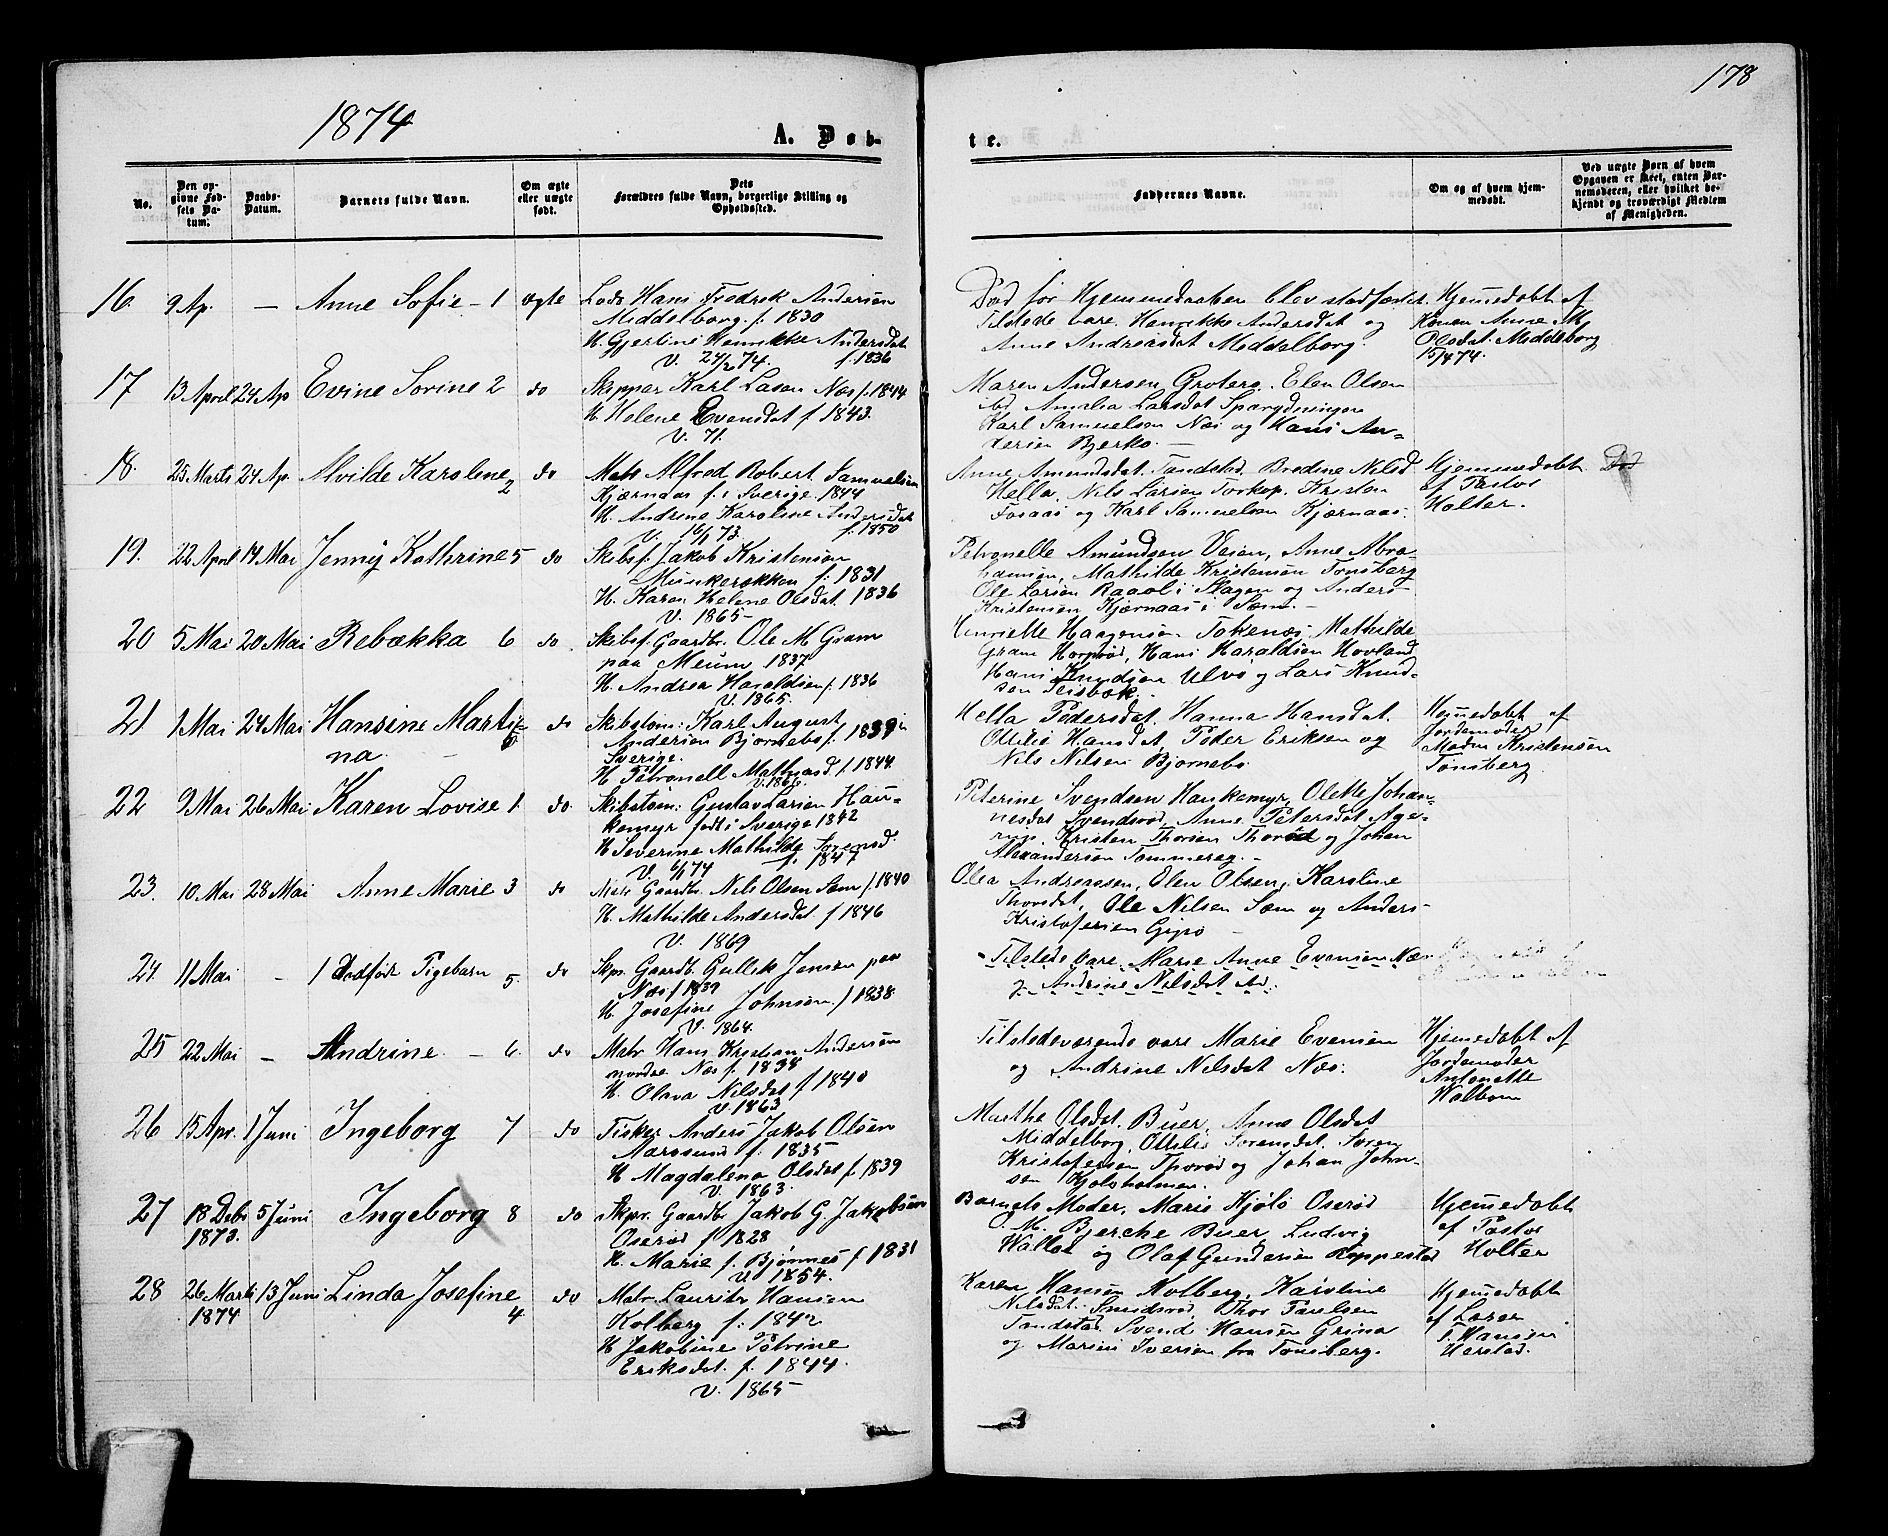 178
1874
A. Døb-
te.
No.
Den op-
givne Fød-
sels Da-
tum.
Daabs-
Datum.
Barnets fulde Navn.
Om ægte
eller uægte
født.
Dets
Forældres fulde Navn, borgerlige Stilling og
Opholdssted.
Faddernes Navne.
Om og af hvem hjem-
medøbt.
Ved uægte Børn af hvem
Opgaven er skeet, enten Bar-
nemoderen, eller hvilket be-
kjendt og troværdigt Medlem
af Menigheden.
16. 9 Ap. — Anne Sofie - 1 ægte
Lods Hans Fredrek Andersen
Middelborg. f. 1830
H. Gjertine Henrikke Andersdat
V. 24/2 74. f. 1836
Død før Hjemmedaaben blev stadfæstet.
Tilstede vare. Henrikke Andersdat og
Anne Andreasdat Middelborg.
Hjemedøbt af
Konen Anne M
Olsdat. Middelborg
15/4 74.
17 13 April 24 Ap Evine Sorine 2 do
Skipper Karl Lasen Næs f. 1844
H Helene Evensdat f 1843.
V. 71.
Maren Andersen Groterø. Elen Olsen
ibd Amalia Larsdat
Karl Samuelsen Næs og Hans An-
dersen Bjerkø. —
18. 25 Marts 24 Ap. Alvilde Karolene 2 do
Mats Alfred Robert Samuelsen
Kjærnaas f. i Sverige 1844
H. Andrine Karoline Andersdat
V. 16/1 73. f. 1850
Anne Amundsdat. Tandstad. Bredine Nilsd
Hella. Nils Larsen Torkop. Kristen
Fosaas og Karl Samuelsen Kjærnaas.
Hjemmedøbt
af Pastor
Holter.
Død
19. 22 April 14 Mai Jenny Kathrine 5 do
Skibsf. Jakob Kristensen
Munkerekken f: 1831
H. Karen Helene Olsdat. 1836
V. 1865-
Petronelle Amundsen Veien, Anne Abra-
hamsen, Mathilde Kristensen Tønsberg
Ole Larsen Raael i Slagen og Anders
Kristensen Kjærnaas i Sæm. —
20 5 Mai 20 Mai Rebækka 6 do
Skibsf. Gaardbr. Ole M Gram
paa Meum 1837
H. Andrea Haraldsen f. 1836
V. 1865.
Henriette Haagensen Tokenæs Mathilde
Gram Horprød, Hans Haraldsen Hovland
Hans Knudsen Ulvø og Lars Knud-
sen Teisbæk.
21 1 Mai 24 Mai Hansine Marti-
na. — 6 do
Skibstøm: Karl August
Andersen Bjørnebo f. 1839 i
Sverige.
H Petronell Mathiasd f. 1844.
V. 1866
Hella Pedersdat. Hanna Hansdat.
Ottilie Hansdat, Peder Eriksen og
Nils Nilsen Bjørnebo
Hjemedøbt af
Jordemoder
Madm Kristensen
Tønsberg.
22 9 Mai 26 Mai Karen Lovise 1. do
Skibstøm: Gustav Larsen Hau-
kemyr født i Sverige 1842
H Severine Mathilde Sørensd.
V. 6/1 74 f. 1847
Peterine Svendsen Haukemyr, Olette Johan-
nesdat Svendsrød, Anne Petersdat Age-
rup. Kristen Thorsen Thorød og Johan
Alexandersen Tømmereg. —
23. 10 Mai 28 Mai Anne Marie 3 do
Mats Gaardbr. Nils Olsen Sæm f. 1840
H. Mathilde Andersdat. f 1846
V. 1869
Olea Andreassen, Olen Olsen, Karoline
Thorsdat, Ole Nilsen Sæm og Anders
Kristofersen Gipø —
24 11 Mai - 1 Dødfødt Pigebarn 5. do
Skpr. Gaardb. Gullik Jensen paa
Næs f 1839
H. Josefine Johnsen. f 1838
V. 1864.
Tilstede vare. Marie Anne Evensen Næs
og Andrine Nilsdat ibd.
25 22 Mai - Andrine. - 6. do
Matr Hans Kristian Andersen
nordre Næs f. 1834
H. Olava Nilsdat f. 1840
V. 1863
Tilstedeværende vare Marie Evensen
og Andrine Nilsdat Næs.
Hjemedøbt af
Jordemoder
Antonette
Walbom
26 15 Apr. 1 Juni Ingeborg 7 do
Fisker Anders Jakob Olsen
Aarøsund f. 1835
H Magdalena Olsdat f. 1839
V. 1863.
Marthe Olsdat. Buer, Anne Olsdat
Middelborg, Ottilie Sørensdat. Søren
Kristofersen Thorød og Johan John-
sen Kjøleholmen.
27 18 Debr 5 Juni Ingeborg 8 do
1873.
Skpr. Gaardbr Jakob G. Jakobsen
Oserød f 1828
H. Marie f. Bjønnes f 1831
V. 1854.
Barnets Moder, Marie Kjølø Oserød
O. M. Bjerche Buer, Ludvig
Walløe og Olaf Gundersen Røppestad
Hjemedøbt
af Pastor
Holter
28 26 Marts 13 Juni Linda Josefine 4 do
1874
Matr. Lauritz Hansen
Kolberg f: 1842
H Jakobine Petrine
Eriksdat. f. 1844.
V. 1865
Karen Hansen Kolberg, Karoline
Nilsdat. Smidsrød, Thor Paulsen
Tandstad. Svend Hansen Grimø
og Marius Iversen fra Tønsberg.
Hjemedøbt
af Lærer
T. Hansen
Herstad.